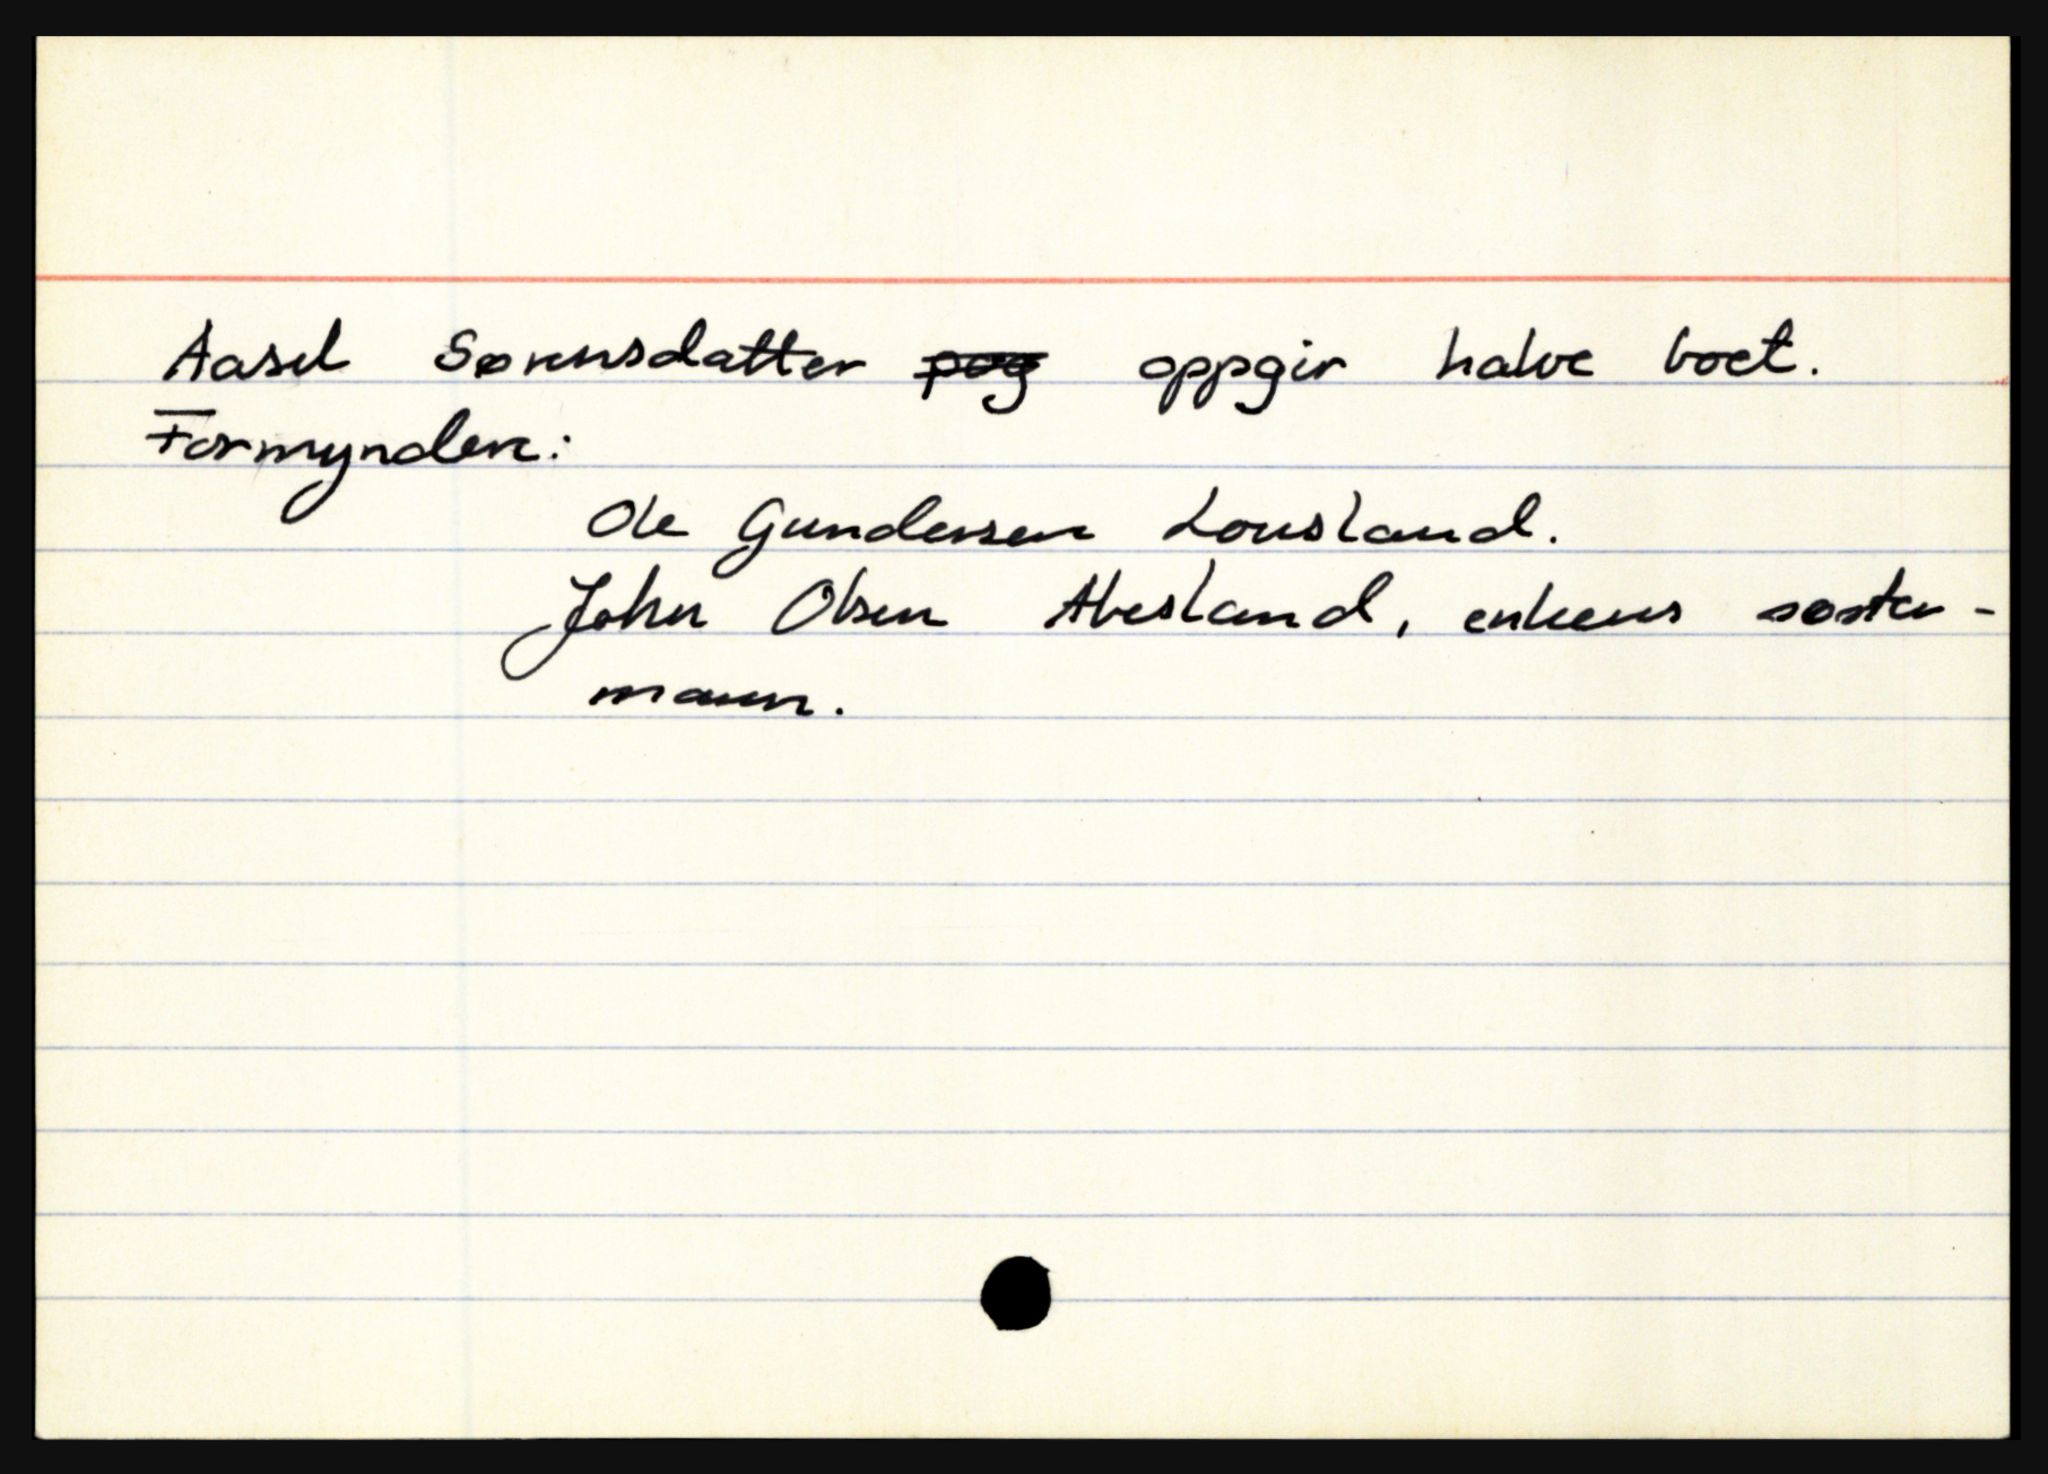 Aasel Sørensdatter oppgir halve boet.
Formyndere:
Ole Gundersen Lonsland.
John Olsen Abesland, enkens søster-
mann.